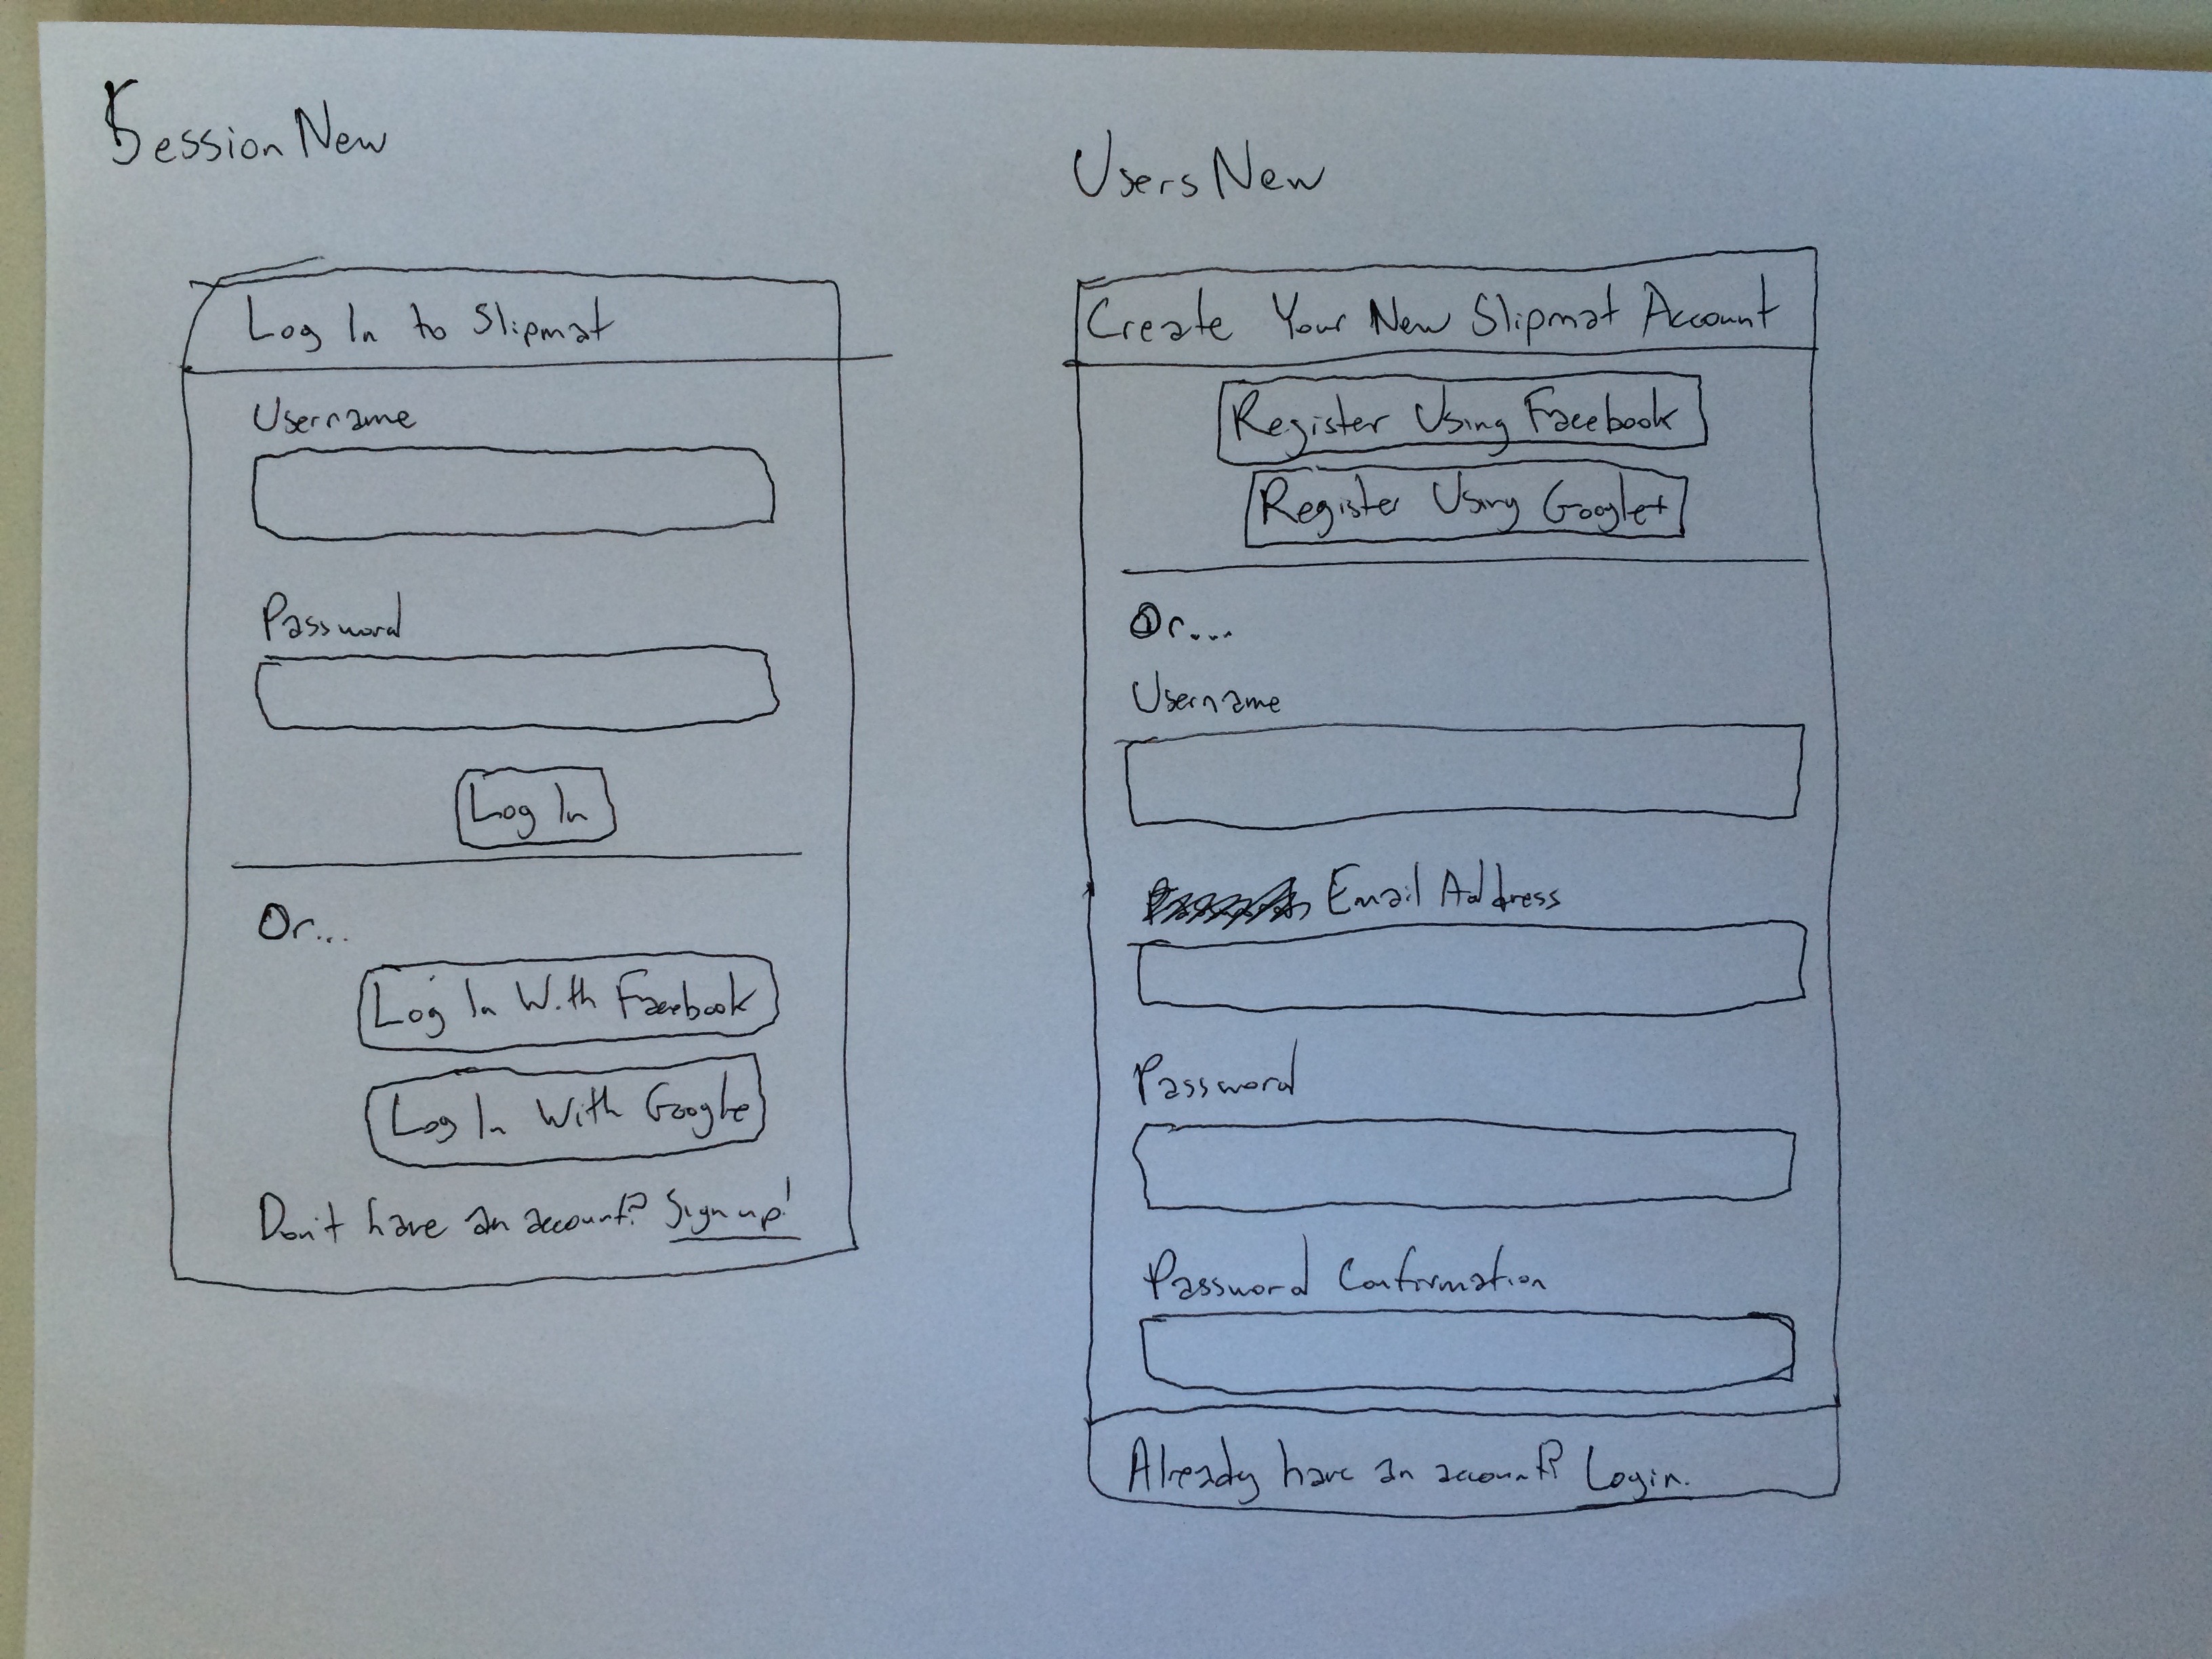 Session New
Log In to Slipmat
Username
Password
Log In
Or...
Log In With Facebook
Log In With Google
Don't have an account? Sign up!
Users New
Create Your New Slipmat Account
Register Using Facebook
Register Using Google+
Or...
Username
Email Address
Password
Password Confirmation
Already have an account? Login.